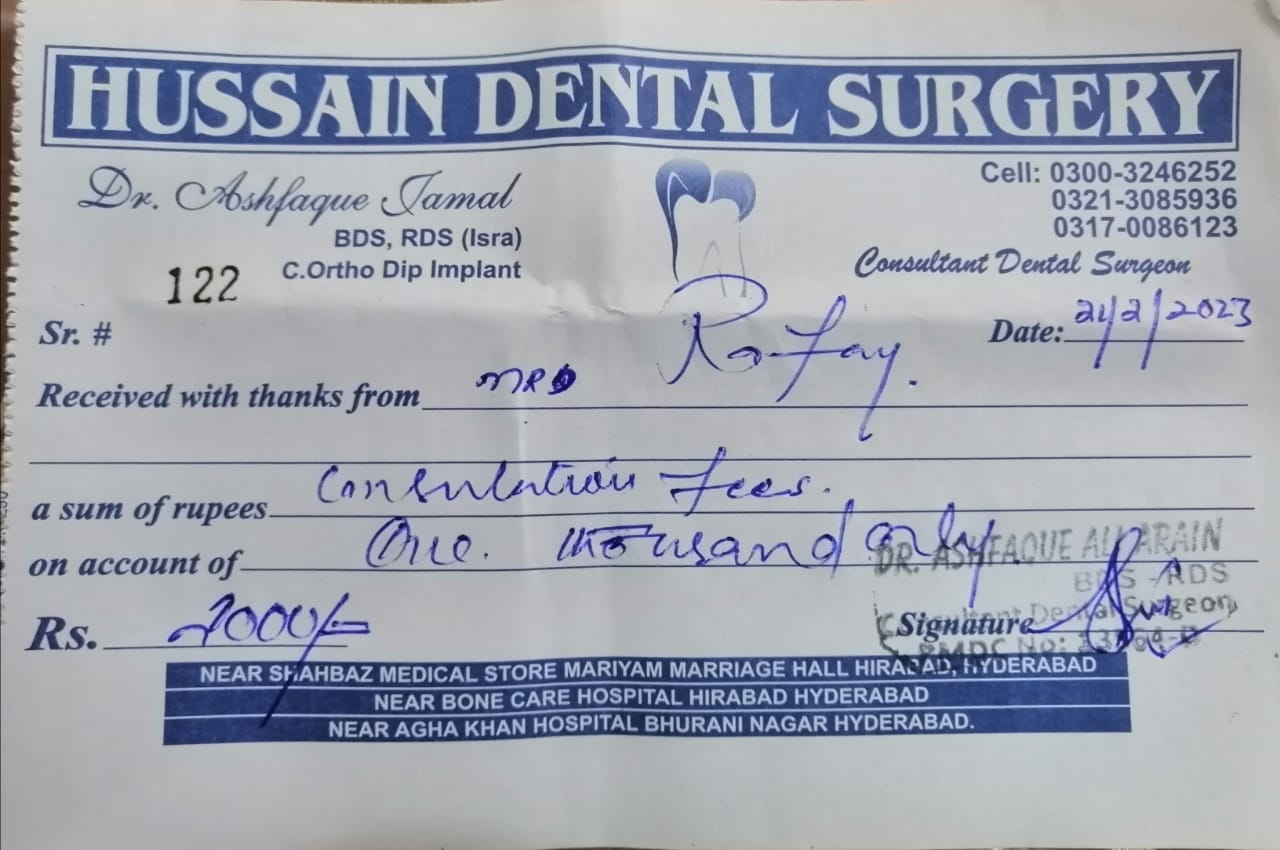 HUSSAIN DENTAL SURGERY
Dr. Ashfaque Jamal
BDS, RDS (Isra)
C.Ortho Dip Implant
Cell: 0300-3246252
0321-3085936
0317-0086123
Consultant Dental Surgeon
122
Sr. #
Date: 21/2/2023
Received with thanks from Rafay.
a sum of rupees Consulation fees.
on account of One. thousand only.
Rs. 1000/-
Signature
DR. ASHFAQUE ALI ARAIN
BDS - RDS
Consultant Dental Surgeon
PMDC No:
NEAR SHAHBAZ MEDICAL STORE MARIYAM MARRIAGE HALL HIRABAD, HYDERABAD
NEAR BONE CARE HOSPITAL HIRABAD HYDERABAD
NEAR AGHA KHAN HOSPITAL BHURANI NAGAR HYDERABAD.